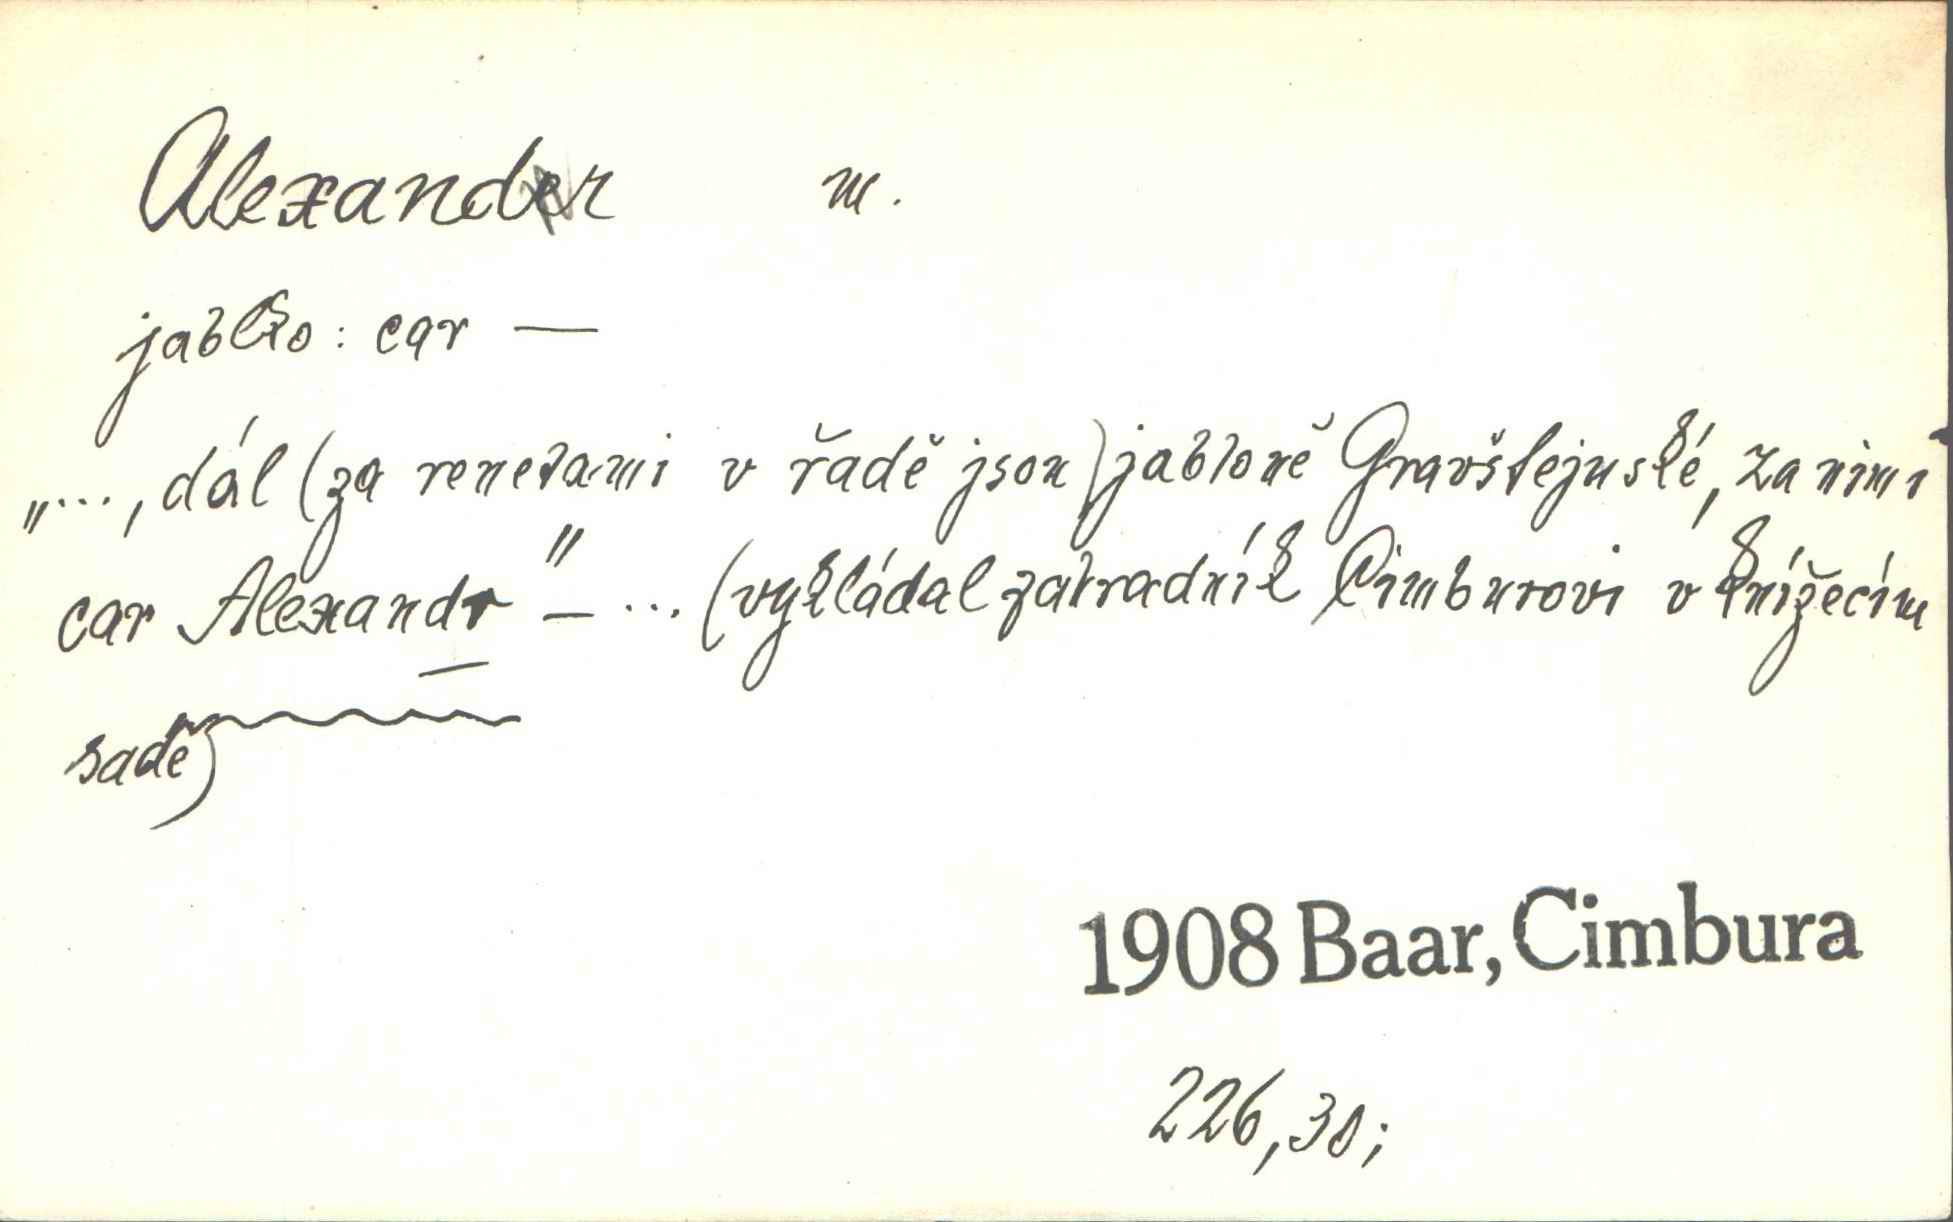 Alexander m.
jablko: car —
„..., dál (za renetami v řadě jsou) jabloně Gravštejnské, za nimi
car Alexandr" — ... (vykládal zahradník Cimburovi v knížecím
sadě)
1908 Baar, Cimbura
226,30;